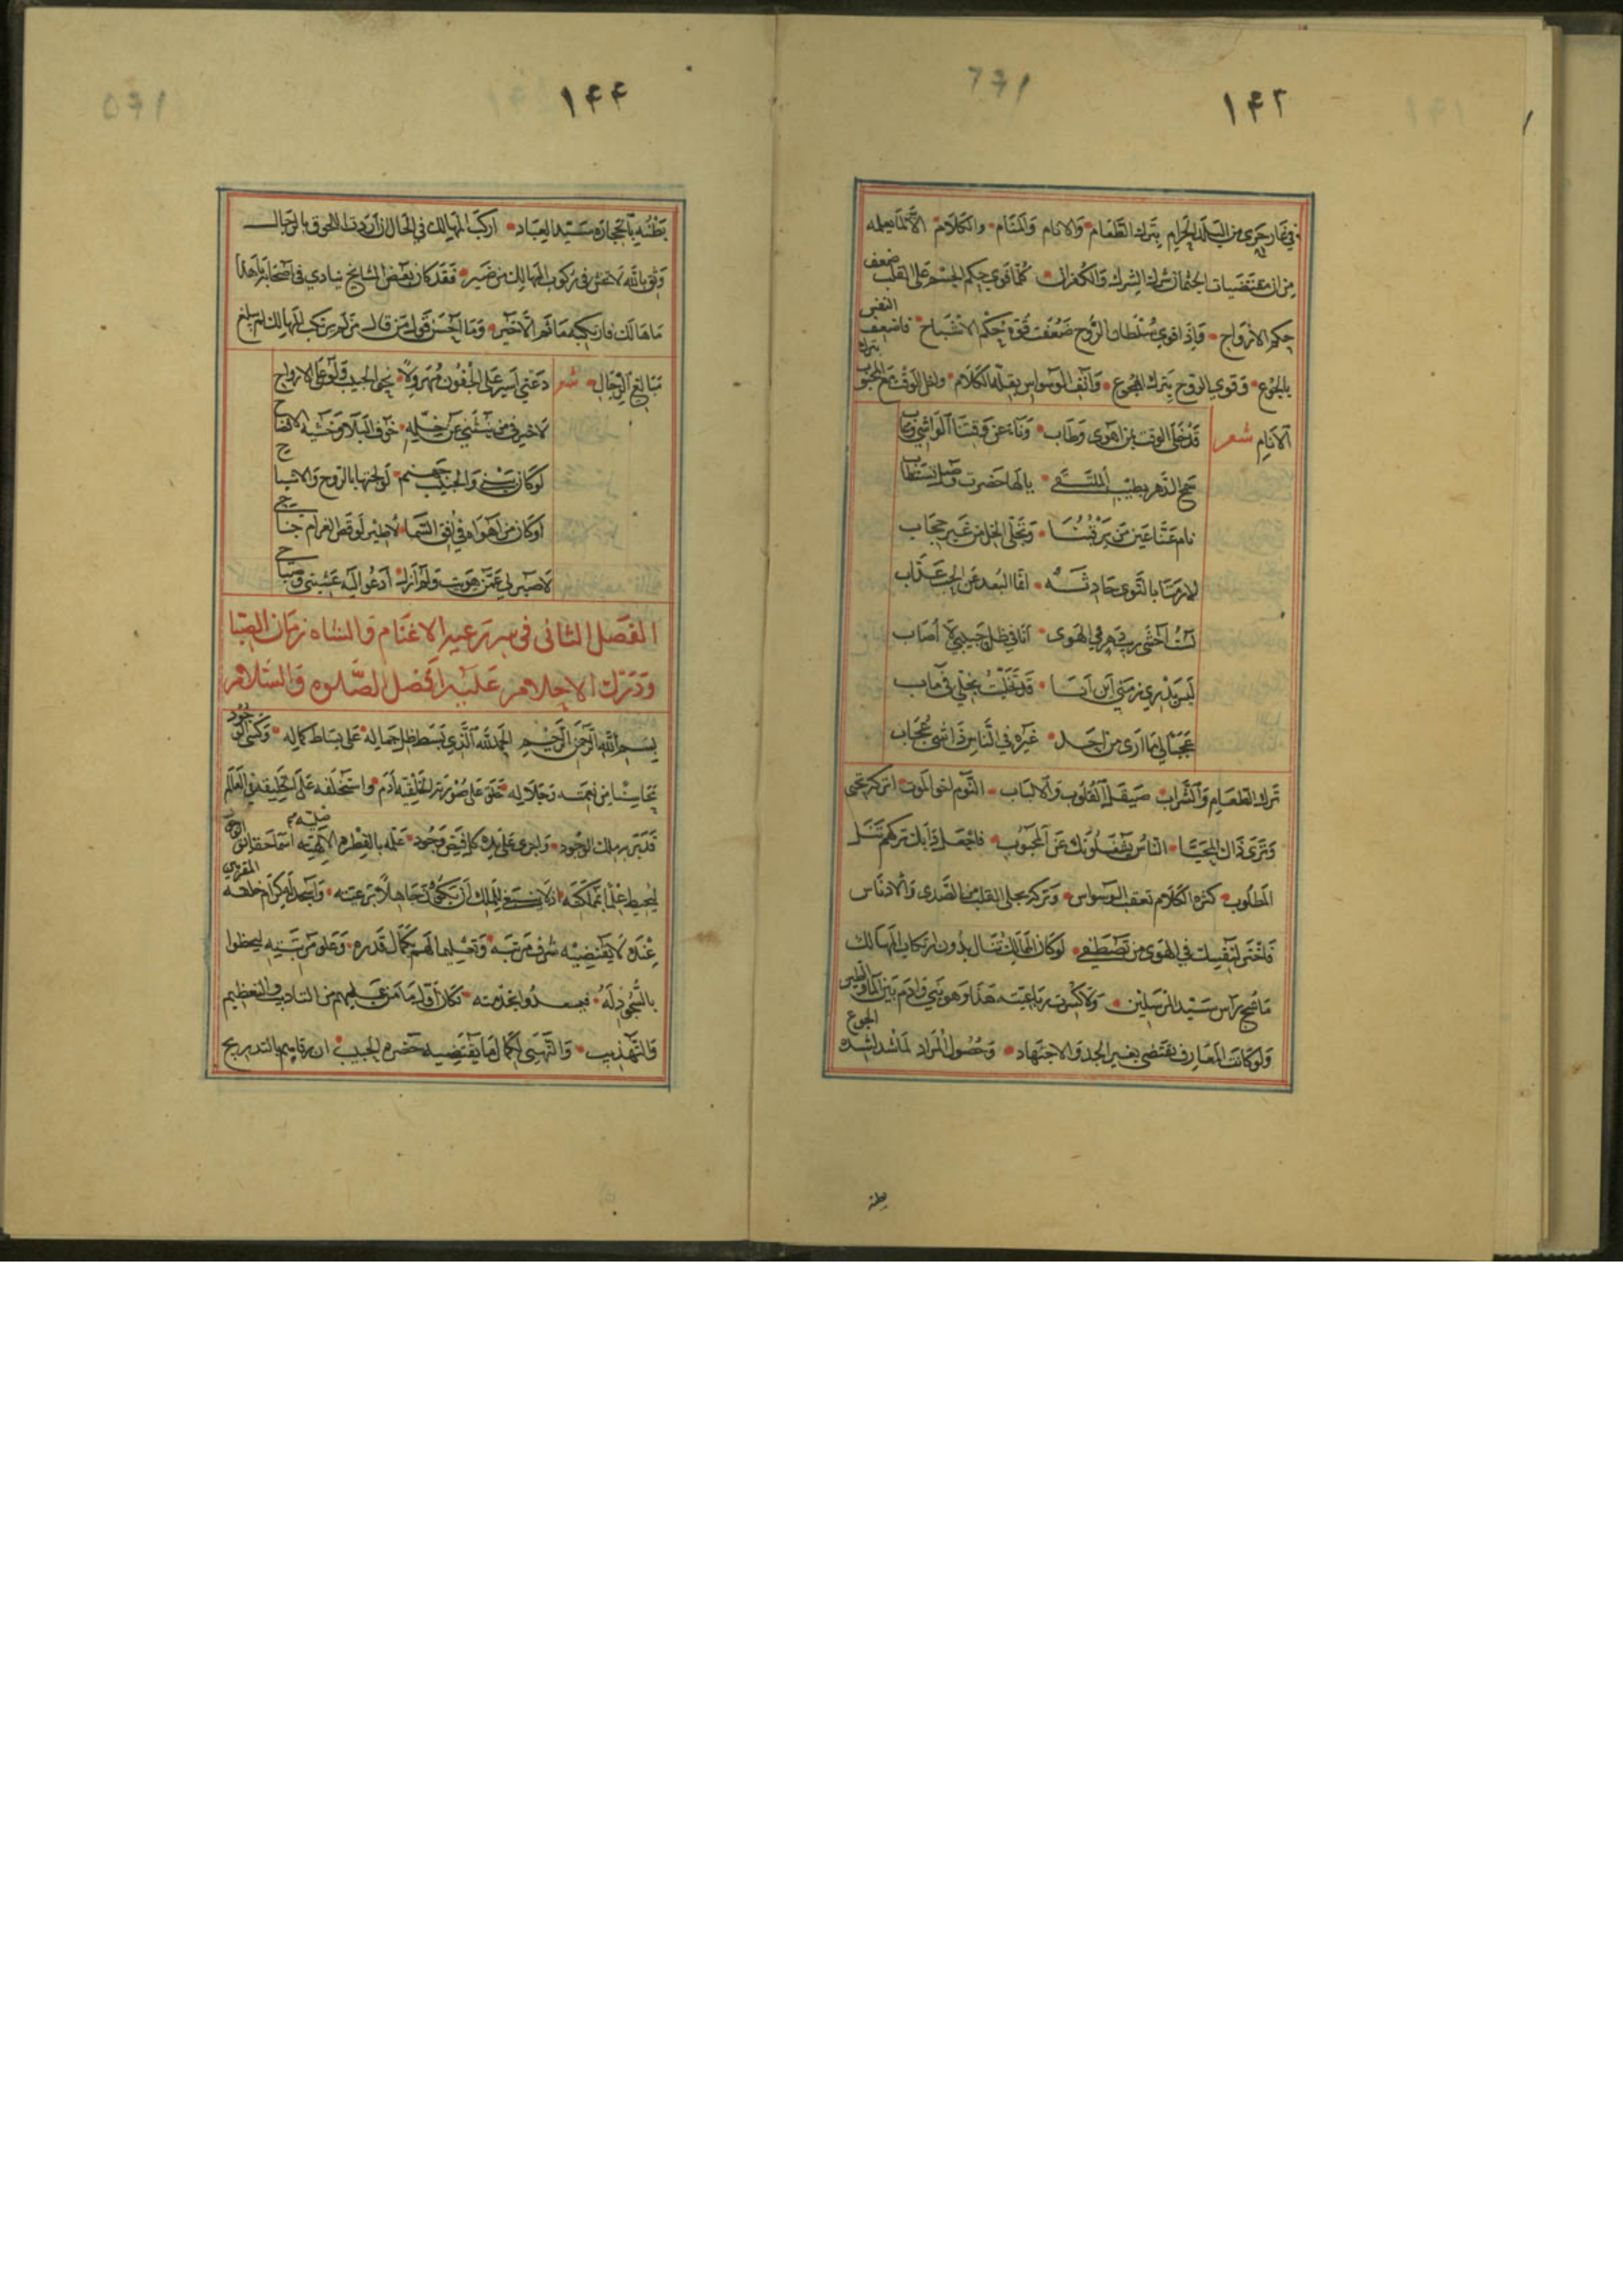 ١٤٢
في غار حرى من البلد الحرام بترك الطعام والانام والمنام والكلام الا لما يعلمه
من ان مقتضيات الجثمان شراك الشرك والكفران كلما قوي حكم الجسم على القلب ضعف
حكم الارواح واذا قوي سلطان الروح ضعفت قوة حكم الاشباح فاضعف النفس
بالجوع وقوي الروح بترك الهجوع وانف الوسواس بقلة الكلام وادخل الوقت مع المحبوب بترك
الانام شعر قد خلى الوقت بمن اهوى وطاب وناء عن وقتنا الواشي وغاب
سمح الدهر بطيب الملتقى يالها حضرت وصل تستطاب
نام عنا عين من يرقبنا وتجلى الخل من غير حجاب
لا رمتنا بالنوى حادثه انما البعد عن الحب عذاب
لست اخشى ريب دهر في الهوى انا في ظل حبيبي لا اصاب
ليس يدري زمني اين انا قد تخليت بخلي في ماب
عجبا لي ما ارى من احد غيره في الناس ذا شئ عجاب
ترك الطعام والشراب صيقل القلوب والالباب النوم اخو الموت اتركه تحيى
وترى ذاك المحيا الناس يشغلونك عن المحبوب فاجعل دابك تركهم تنل
المطلوب كثرة الكلام تعقب الوسواس وتركه يجلي القلب من الصدى والادناس
فاختر لنفسك في الهوى من تصطفي لو كان الممالك تنال بدون ارتكاب المهالك
ما شج راس سيد المرسلين ولا كسرت رباعيته هذا وهو نبي وادم بين الماء والطين
ولو كانت المعارف تقتضي بغير الجد والاجتهاد وحصول المراد لما شد لشدة الجوع
بطنه
١٤٤
بطنه بالحجارة سيد العباد اركب المهالك في الحال ان اردت اللحوق بالرجال
وثق بالله لا تخش في ركوب المهالك من ضير فقد كان بعض المشايخ ينادي في اصحابه يا هذا
ما هالك فاركبه فما ثم الا خير وما احسن قول من قال من لم يركب المهالك لم يبلغ
مبالغ الرجال شعر دعني اسير على الجفون مهرولا نحو الحبيب ولو على الارواح
لاخير في من ينثني عن خله خوف البلا وخشيه الافضاح
لو كان بيني والحبيب جهنم لولجتها بالروح والاشباح
او كان من اهواه في افق السما لاطير لو قص الغرام جناحي
لا صبر لي عمن هويت ولم ازل ادعو اليه عشيتي وصباحي
الفصل الثاني في سر رعيه الاغنام والشاه زمان الصبا
ودرك الاحلام عليه افضل الصلوه والسلام
بسم الله الرحمن الرحيم الحمد لله الذي بسط ظل جماله على بساط كماله وكسى الوجود
محاسنا من نعمته وجلاله خلق على صورته الخليقه آدم واستخلفه على الخليقه في العالم
فدبر به ملك الوجود واجرى على يده كل فيض وجود علمه بالفطره الالهيه اسما حقائق الوجود
ليحيط علما بمملكته اذ لا ينبغي للملك ان يكون جاهلا برعيته واسجد له كرام خلقه المقربين
عنده لما يقتضيه شرف مرتبه وتعليما لهم بكمال قدره وعلو مرتبته ليحظوا
بالسجود له فيسعدوا بخدمته فكان اول ما امر عليهم من التاديب والتعظيم
والتهذيب والتهيى لكمال ما يقتضيه حضره الحبيب ان رقاهم بالتدريج